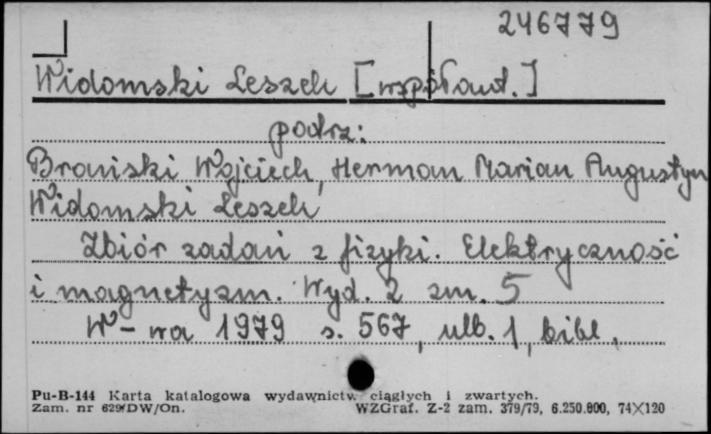 246779
Widomski Leszek [współaut.]
podrz:
Brański Wojciech, Herman Marian Augustyn
Widomski Leszek
Zbiór zadań z fizyki. Elektryczność
i magnetyzm. Wyd. 2 zm. 5
W-wa 1979 s. 567, ulb. 1, bibl.
Pu-B-144 Karta katalogowa wydawnictw ciągłych i zwartych.
Zam. nr 629/DW/On. WZGraf. Z-2 zam. 379/79, 6.250.000, 74X120